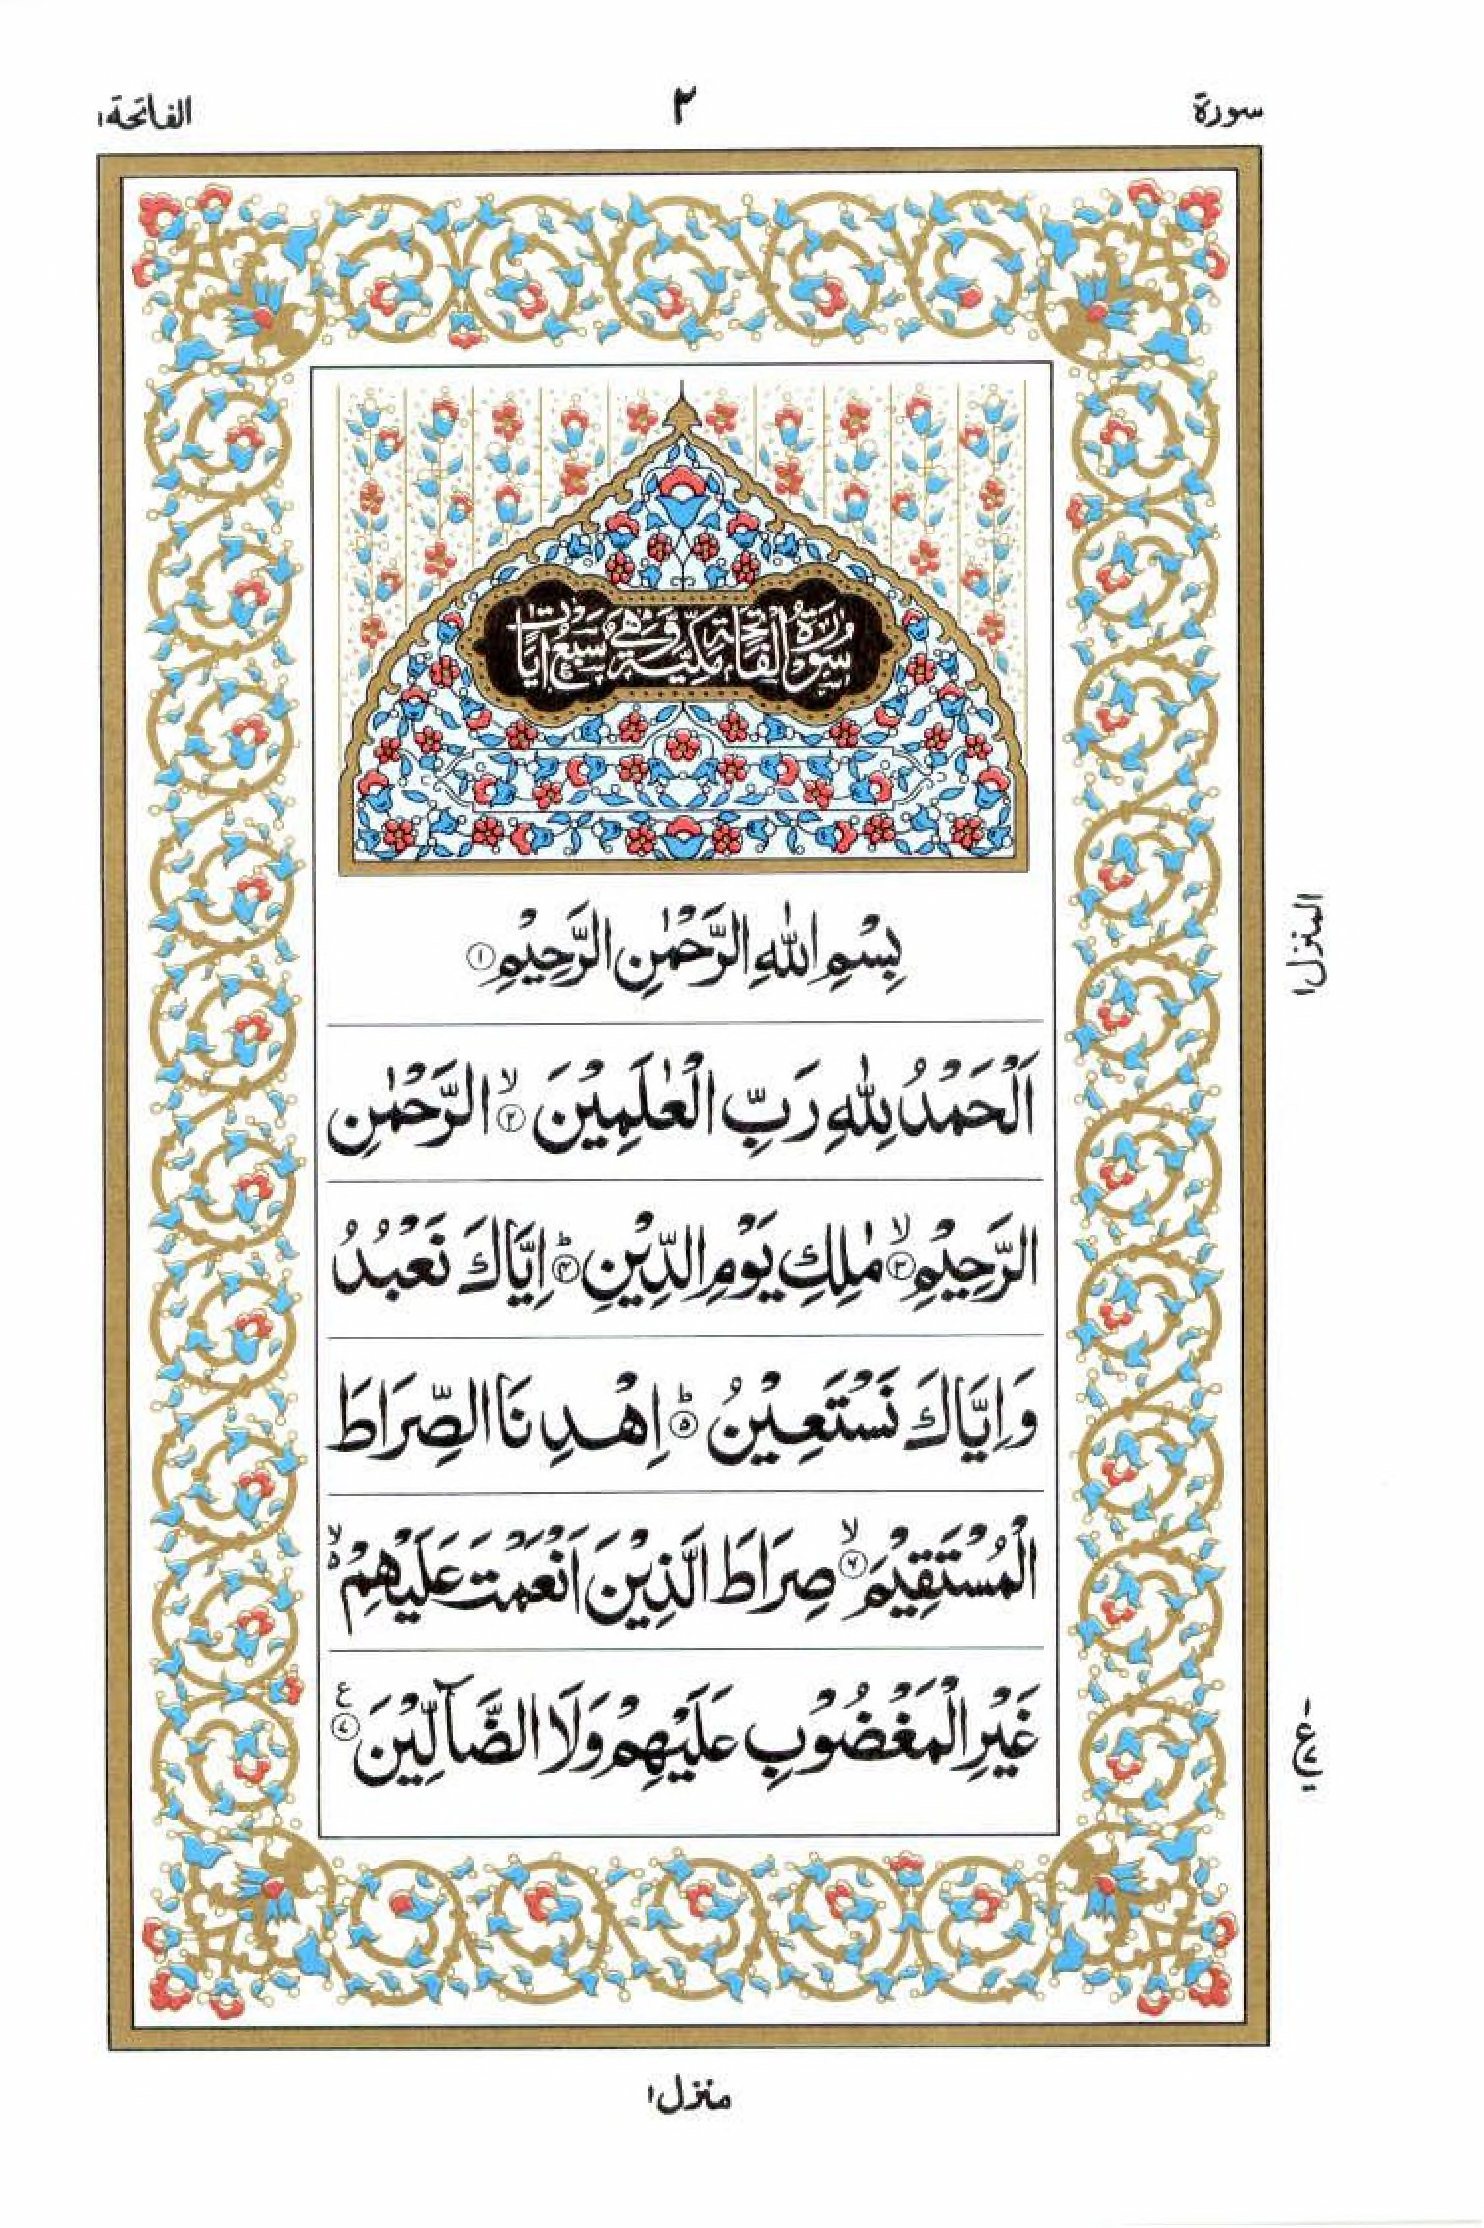 سورة ٢ الفاتحة ١
سُوْرَةُ الْفَاتِحَةِ مَكِّيَّةٌ وَّهِيَ سَبْعُ اٰيَاتٍ
بِسْمِ اللّٰهِ الرَّحْمٰنِ الرَّحِيْمِ ①
اَلْحَمْدُ لِلّٰهِ رَبِّ الْعٰلَمِيْنَ ۙ② الرَّحْمٰنِ
الرَّحِيْمِ ۙ③ مٰلِكِ يَوْمِ الدِّيْنِ ؕ④ اِيَّاكَ نَعْبُدُ
وَاِيَّاكَ نَسْتَعِيْنُ ؕ⑤ اِهْدِنَا الصِّرَاطَ
الْمُسْتَقِيْمَ ۙ⑥ صِرَاطَ الَّذِيْنَ اَنْعَمْتَ عَلَيْهِمْ ۙ۬
غَيْرِ الْمَغْضُوْبِ عَلَيْهِمْ وَلَا الضَّآلِّيْنَ ⑦ ع
المنزل ١
ع
منزل ١